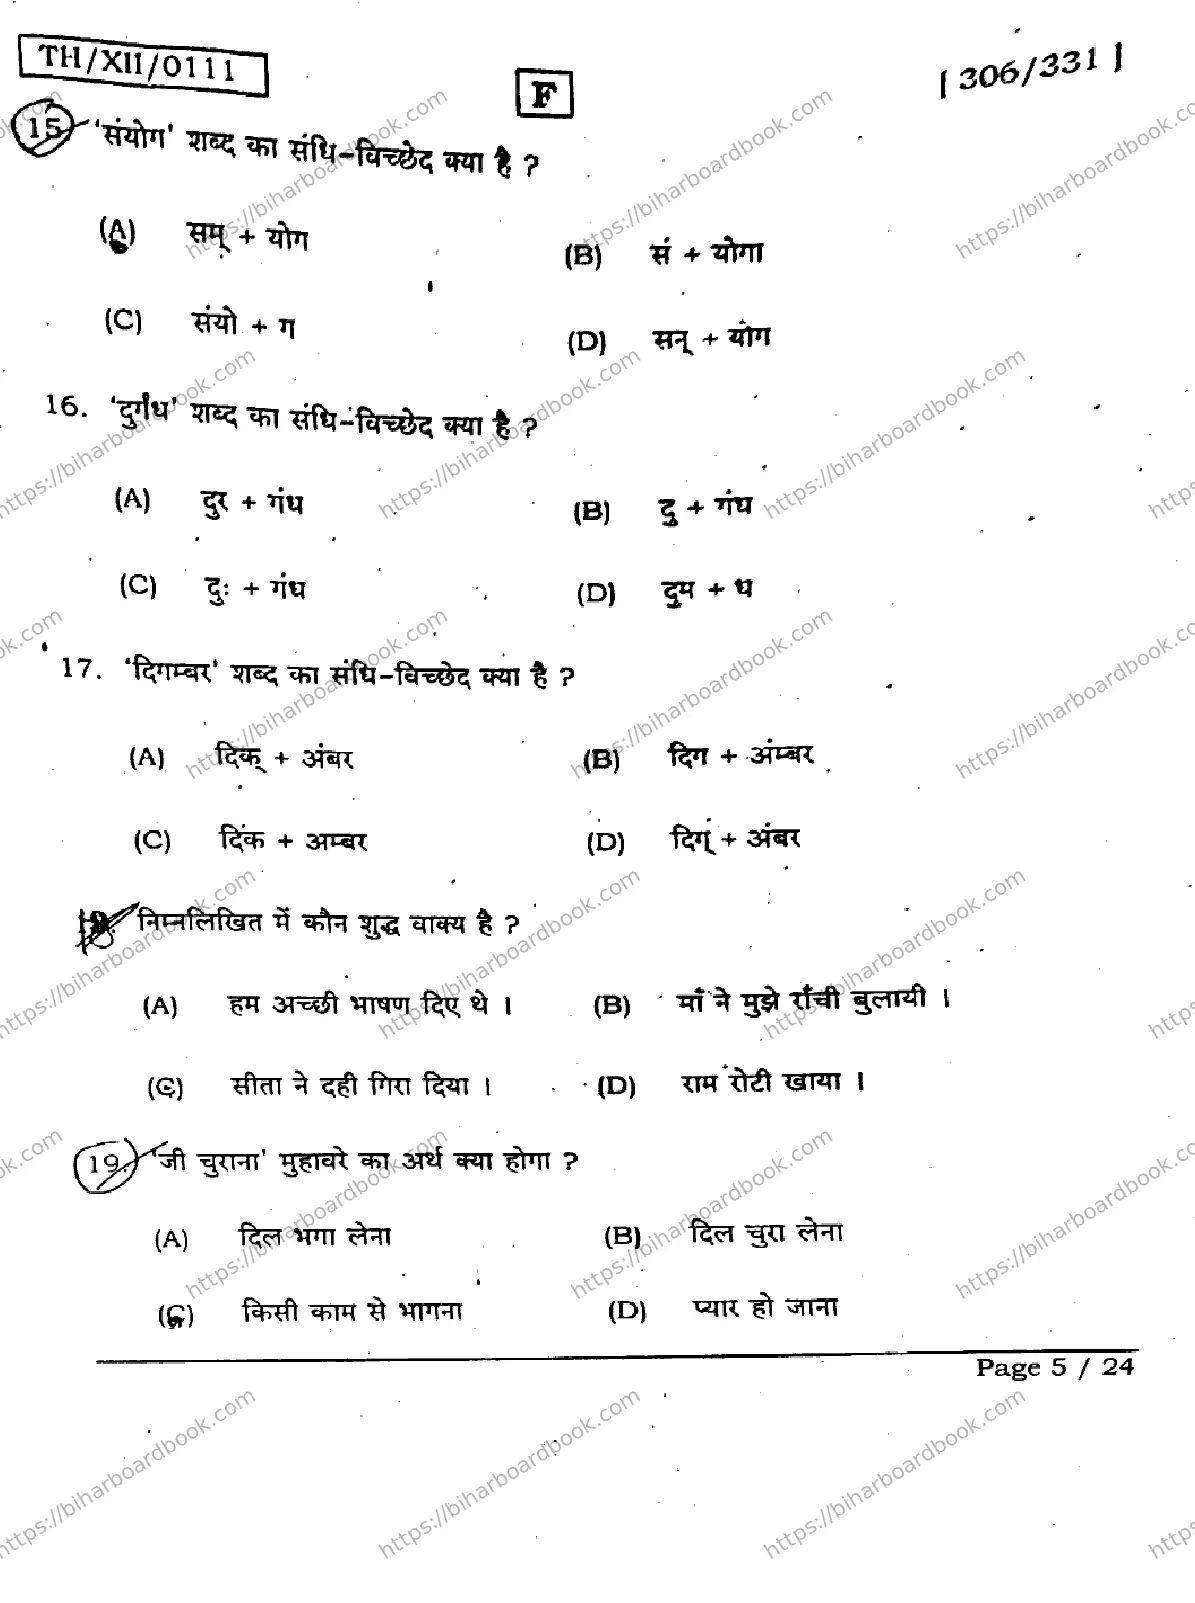 TH/XII/0111
F
[ 306/331 ]
15. 'संयोग' शब्द का संधि-विच्छेद क्या है ?
(A) सम् + योग (B) सं + योगा
(C) संयो + ग (D) सन् + योग
16. 'दुर्गंध' शब्द का संधि-विच्छेद क्या है ?
(A) दुर + गंध (B) दु + गंध
(C) दुः + गंध (D) दुम + ध
17. 'दिगम्बर' शब्द का संधि-विच्छेद क्या है ?
(A) दिक् + अंबर (B) दिग + अंम्बर
(C) दिंक + अम्बर (D) दिग् + अंबर
18. निम्नलिखित में कौन शुद्ध वाक्य है ?
(A) हम अच्छी भाषण दिए थे । (B) माँ ने मुझे राँची बुलायी ।
(C) सीता ने दही गिरा दिया । (D) राम रोटी खाया ।
19. 'जी चुराना' मुहावरे का अर्थ क्या होगा ?
(A) दिल भगा लेना (B) दिल चुरा लेना
(C) किसी काम से भागना (D) प्यार हो जाना
Page 5 / 24
https://biharboardbook.com